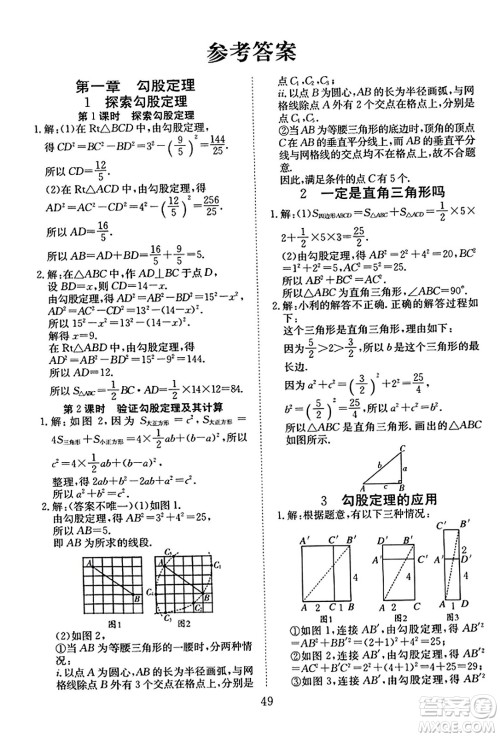 参考答案
第一章 勾股定理
1 探索勾股定理
第1课时 探索勾股定理
1.解:(1)在 Rt△BCD 中,由勾股定理,
得 CD²=BC²-BD²=3²-(9/5)²=144/25.
所以 CD=12/5.
(2)在 Rt△ACD 中,由勾股定理,得
AD²=AC²-CD²=4²-(12/5)²=256/25.
所以 AD=16/5.
所以 AB=AD+BD=16/5+9/5=5.
2.解:在△ABC 中,AD⊥BC 于点 D,
设 BD=x,则 CD=14-x.
由勾股定理,得 AD²=AB²-BD²=15²-
x²,AD²=AC²-CD²=13²-(14-x)².
所以 15²-x²=13²-(14-x)².
解得 x=9.
在 Rt△ABD 中,由勾股定理,
得 AD²=AB²-BD²=15²-9²=144.
所以 AD=12.
所以 S△ABC=1/2BC·AD=1/2×14×12=84.
第2课时 验证勾股定理及其计算
1.解:如图 2.因为 S大正方形=c²,S大正方形=
4S三角形+S小正方形=4×1/2ab+(b-a)²,
所以 c²=4×1/2ab+(b-a)².
整理,得 2ab+b²-2ab+a²=c².
所以 c²=a²+b².
2.解:(答案不唯一)(1)如图 1.
由勾股定理,得 AB²=4²+3²=25.
所以 AB=5.
线段 AB 为所求的线段.
A
B
图1
C₁
C₂
C₃
C₄
C₅
A
B
图2
(2)如图 2.
①当 AB 为等腰三角形的一腰时,分两种
情况:
ⅰ.以点 A 为圆心,AB 的长为半径画弧,与
网格线除点 B 外有两个交点,分别记为
点 C₁,点 C₂;
ⅱ.以点 B 为圆心,AB 的长为半径画弧,与网
格线除点 A 外有三个交点,分别记为点 C₃,
点 C₄,点 C₅;
②当 AB 为等腰三角形的底边时,顶角的顶
点在 AB 的垂直平分线上,AB 的垂直平分线
与网格线的交点均不在格点上,故不符合
题意.
综上,满足条件的点 C 有 5 个.
2 一定是直角三角形吗
1.解:(1)S四边形ABCD=S△ABC+S△ACD=1/2×5×
2+1/2×5×3=25/2.
(2)因为 AC²+BC²=2²+4²+1²+2²=25,
AB²=5²=25,
所以 AC²+BC²=AB².
所以△ABC 是直角三角形.
2.解:小利的解答不正确.正确的解答过程如
下:
这个三角形是直角三角形.理由如下:
因为 5/2>2>3/2,所以 a 是这个三角形的最
长边.
因为 a²=(5/2)²=25/4,
b²+c²=2²+(3/2)²=25/4,
所以 a²=b²+c².
所以△ABC 是直角三角形.
C
A
B
3 勾股定理的应用
1.解:根据题意,有以下三种情况:
B′
4
A
2
C
1
图1
A′
C′
B′
4
A
2
图2
A′
B′
4
A
1
C
图3
①如图 1,连接 AB′,由勾股定理,得 AB′²=
②如图 2,连接 AB′,由勾股定理,得 AB′²=
AC²+B′C²=2²+(4+1)²=29;
③如图 3,连接 AB′,由勾股定理,得 AB′²=
49